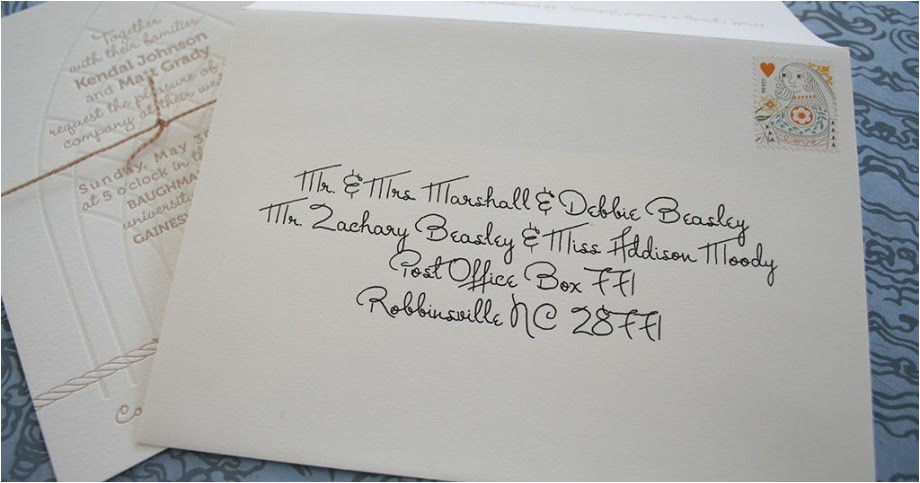 Together
with their families
Kendal Johnson
and Matt Grady
request the pleasure of
company at their
Sunday, May
at 5 o'clock in the
Mr. & Mrs. Marshall & Debbie Beasley
Mr. Zachary Beasley & Miss Addison Moody
Post Office Box 771
Robbinsville NC 28771